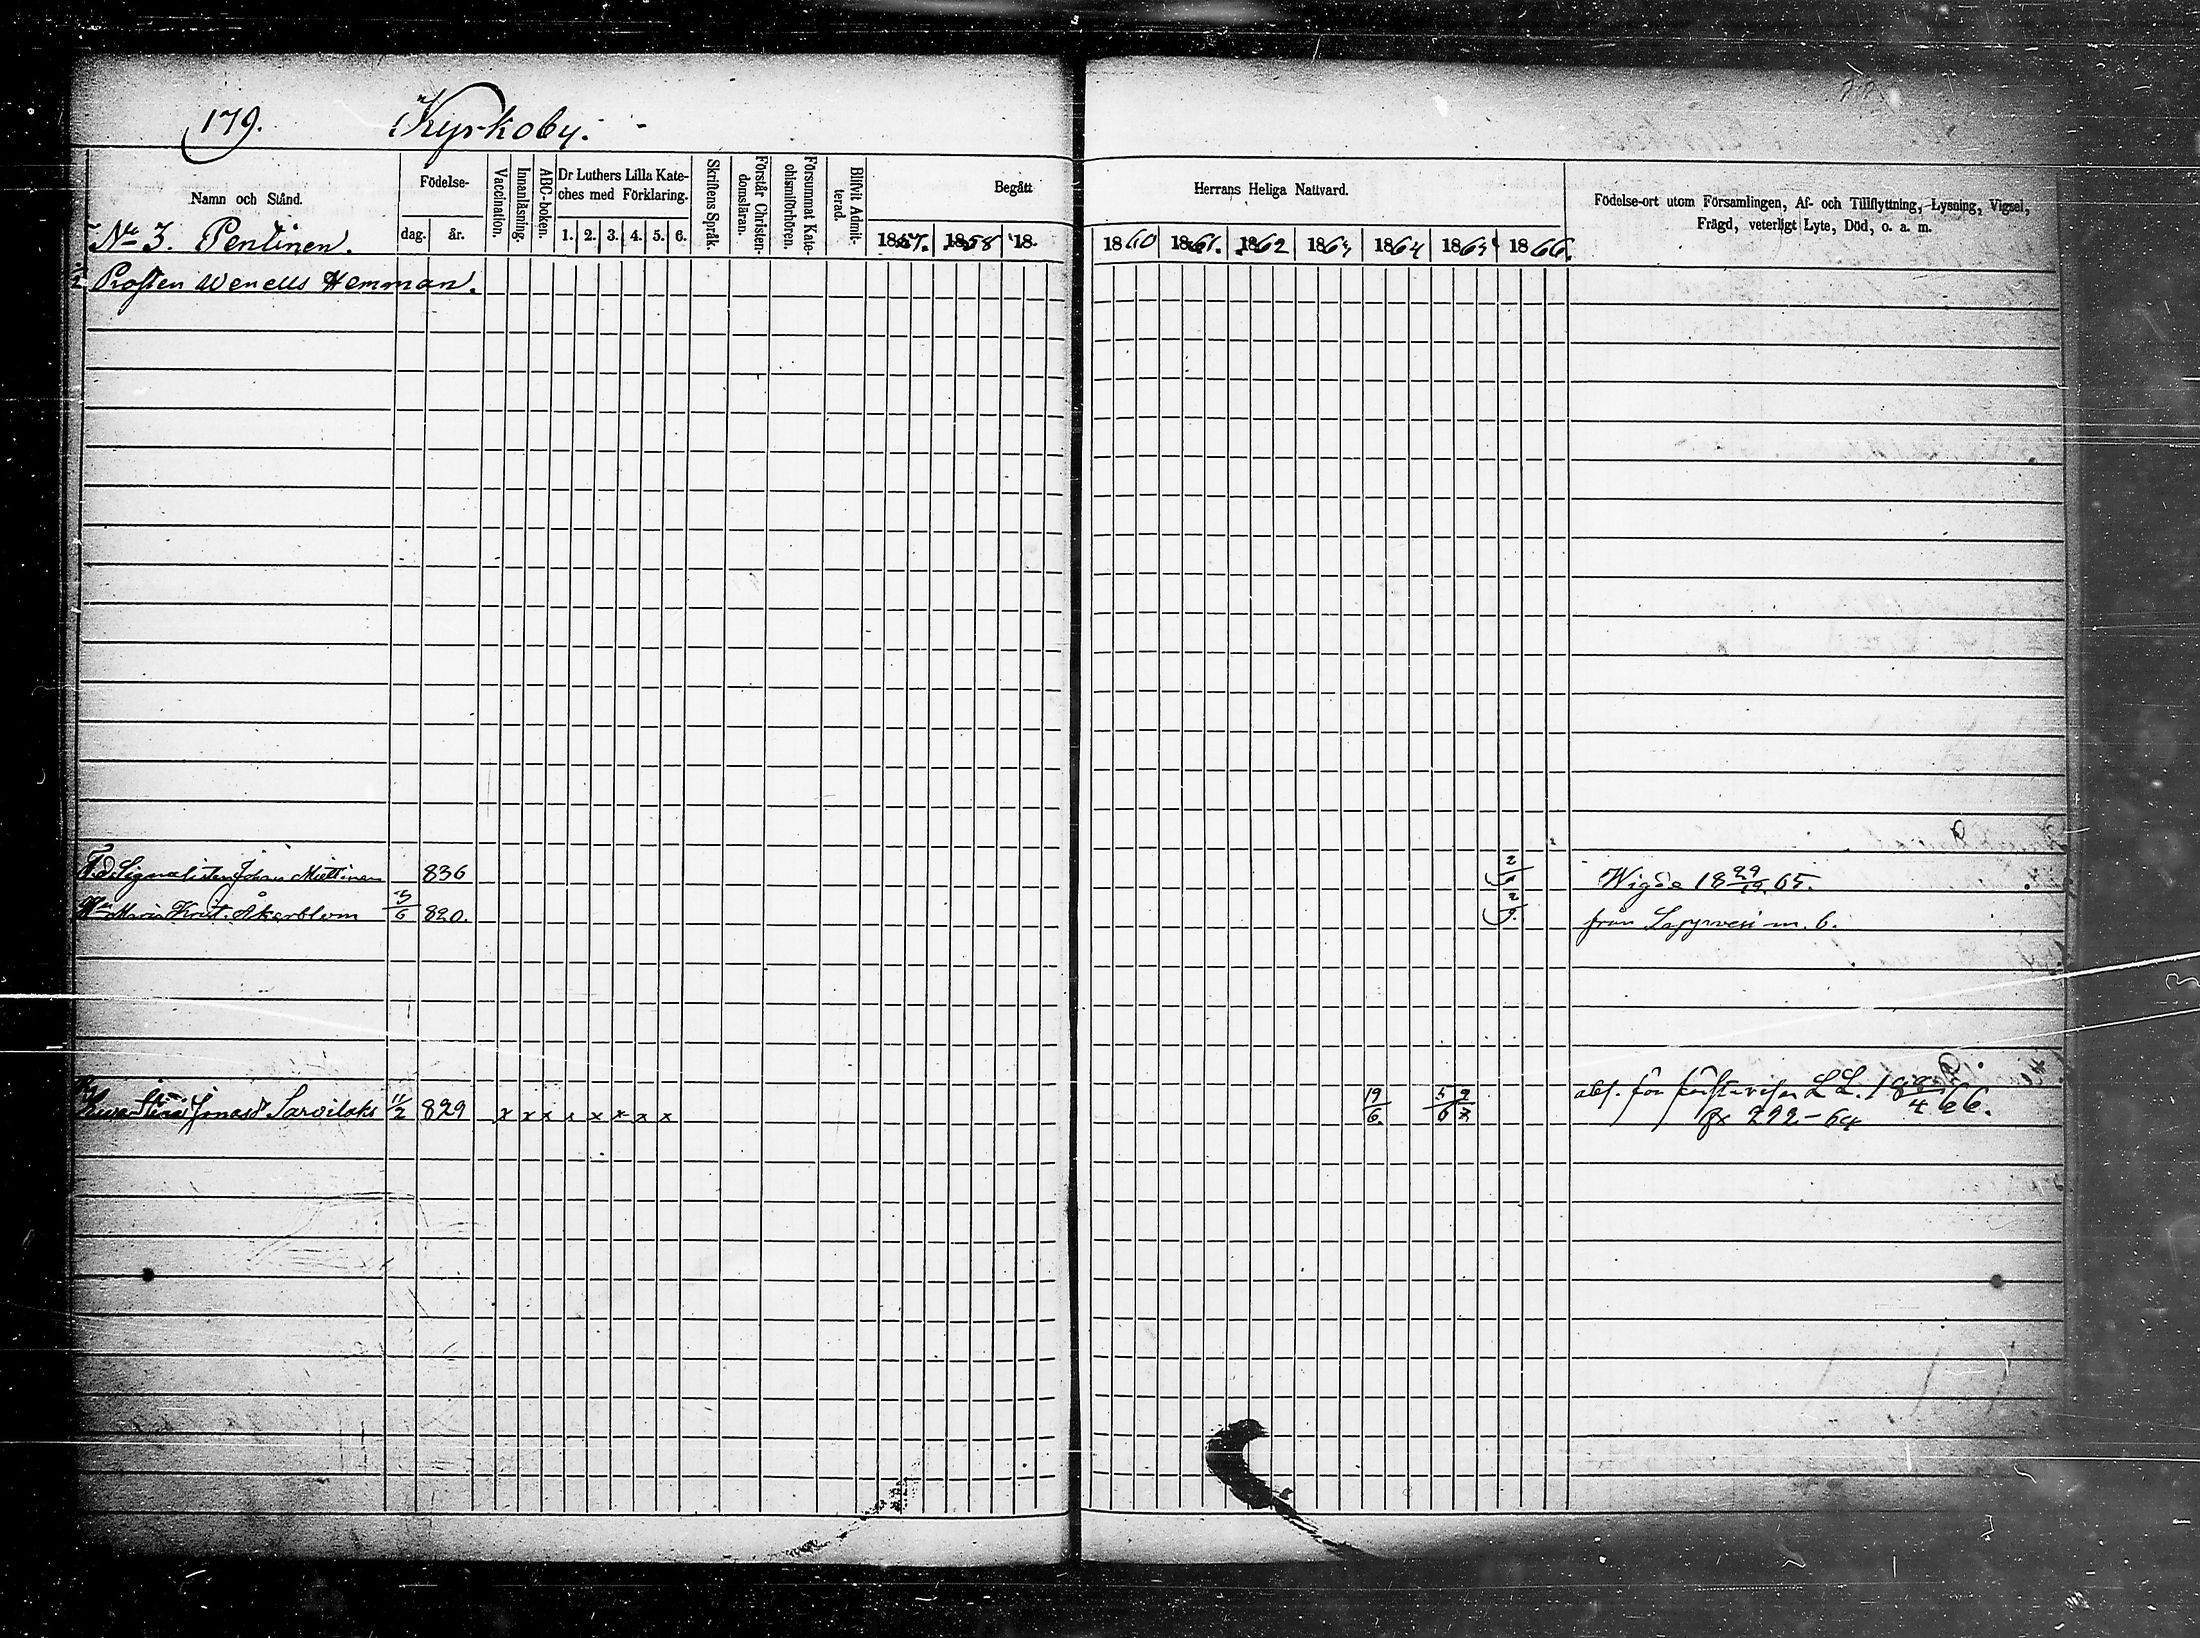 179. Kyrkoby.
Namn och Stånd.
Födelse-
dag. år.
Vaccination.
Innanläsning.
ABC-boken.
Dr Luthers Lilla Kate-
ches med Förklaring.
1. 2. 3. 4. 5. 6.
Skriftens Språk.
Förstår Christen-
domsläran.
Försummat Kate-
chismiförhören.
Blifvit Admit-
terad.
Begått
1857. 1858 18
Herrans Heliga Nattvard.
1860 1861. 1862 1863 1864 1865 1866.
Födelse-ort utom Församlingen, Af- och Tillflyttning, Lysning, Vigsel,
Frägd, veterligt Lyte, Död, o. a. m.
No 3. Pentinen.
1/2 Prosten Wenells Hemman.
F.d. Signalisten Johan Miettinen 836 2/9 Wigde 18 29/12 65.
Hu Maria Krist. Åkerblom 3/6 820. 2/9. från m. b.
Jonasdr Sarvilaks 11/2 829 x x x x x x x x 19/6. 5/6 9/7 18 4 66.
292-64